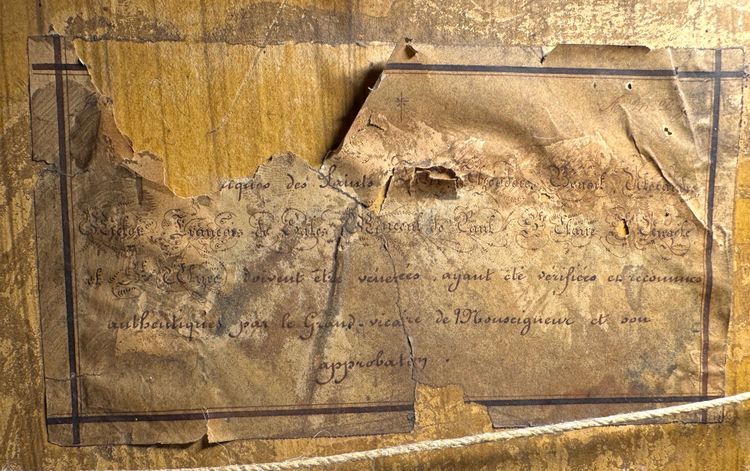 iques des Saints Théodore, Benoit, Nicolas,
François de Sales, Vincent de Paul, Ste Claire
et Ste doivent être vénérées, ayant été vérifiées et reconnues
authentiques par le Grand-vicaire de Monseigneur et son
approbaton.